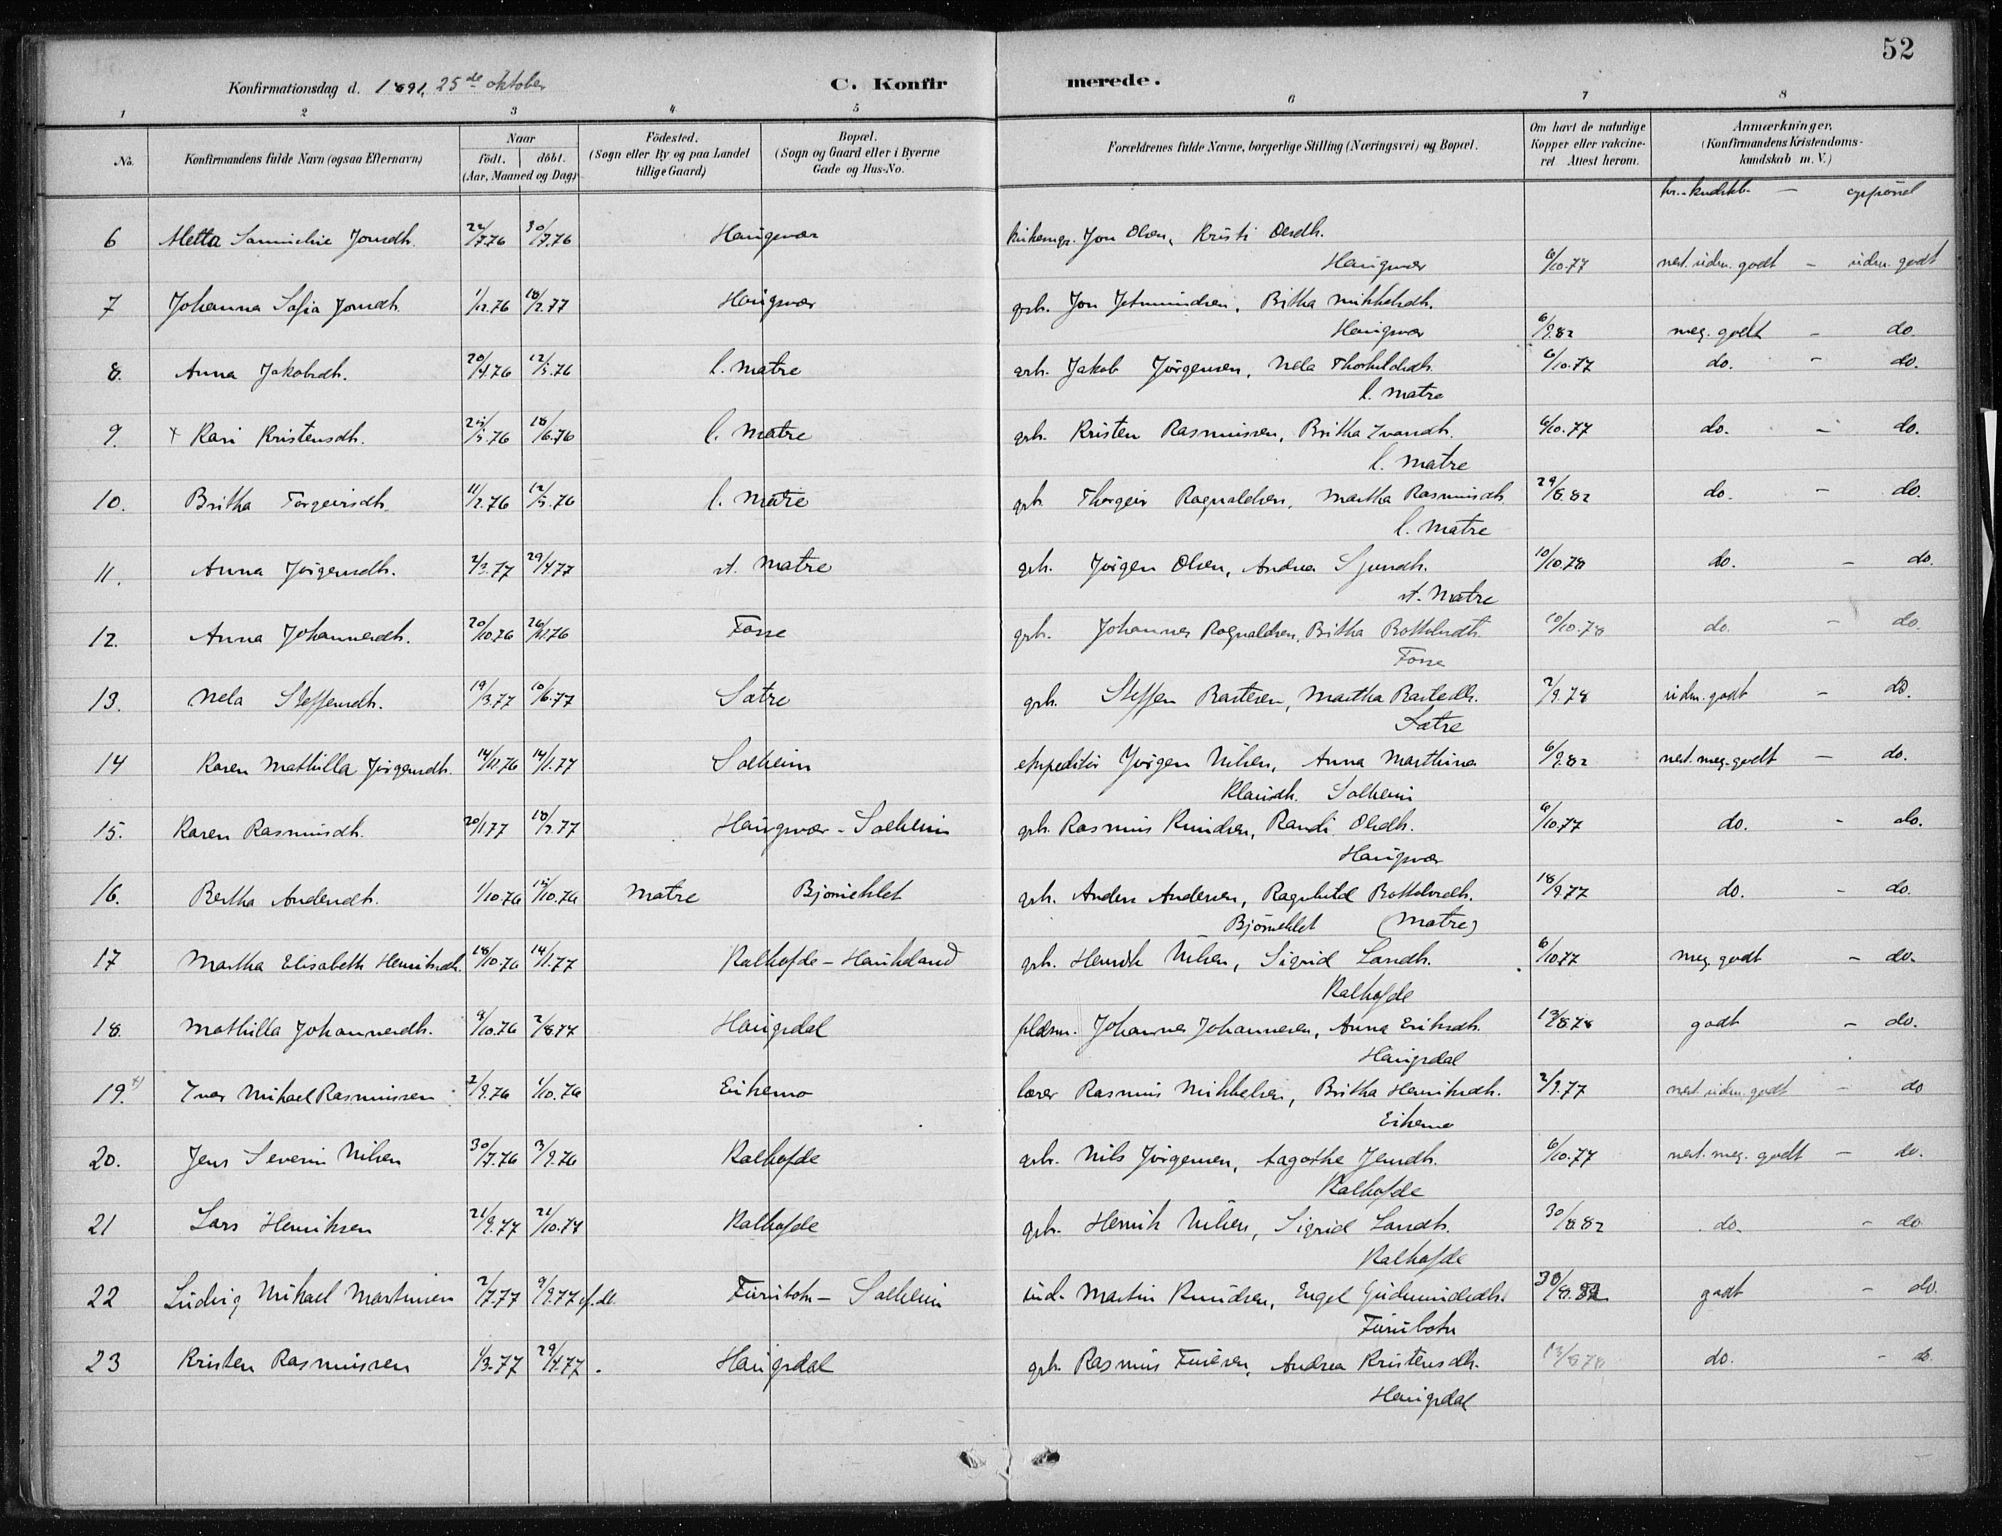 52
Konfirmationsdag d. 1891, 25de oktober C. Konfirmerede.
1 2 3 4 5 6 7 8
No. Konfirmandens fulde Navn (ogsaa Efternavn) Naar født. døbt. (Aar, Maaned og Dag) Fødested. (Sogn eller By og paa Landet tillige Gaard) Bopæl. (Sogn og Gaard eller i Byerne Gade og Hus-No. Forældrenes fulde Navne, borgerlige Stilling (Næringsvei) og Bopæl. Om havt de naturlige Kopper eller vakcineret Attest herom. Anmærkninger. (Konfirmandens Kristendomskundskab m. V.)
kr. kndskb. - opførsel
6 Metta Jonsdh. 22/7.76 30/7.76 Haugsvær Jon Olsen, Kristi Olsdh.
Haugsvær 6/10.77 nest. udm. godt - udm. godt
7 Johanna Sofia Jonsdh. 1/12.76 18/2.77 Haugsvær grb. Jon Jetmundsen, Britha Mikkelsdh.
Haugsvær 6/9.82 meg. godt - do.
8. Anna Jakobsdh. 20/4.76 12/5.76 l. Matre grb. Jakob Jørgensen, Nela Thorkildsdh. 6/10.77 do. - do.
l. Matre
9. x Kari Kristensdh. 25/5.76 18/6.76 l. Matre grb. Kristen Rasmussen, Britha Ivarsdh. 6/10.77 do. - do.
l. Matre
10. Britha Torgeirsdh. 11/2.76 12/5.76 l. Matre grb. Thorgeir Ragnaldsen, Martha Rasmusdh. 29/8.82 do. - do.
l. Matre
11. Anna Jørgensdh. 2/3.77 29/4.77 st. Matre grb. Jørgen Olsen, Andrea Sjursdh. 10/10.78 do. - do.
st. Matre
12. Anna Johannesdh. 20/10.76 26/12.76 Fosse grb. Johannes Ragnaldsen, Britha Bottolvsdh. 10/10.78 do. - do.
Fosse
13. Nela Steffensdh. 19/3.77 10/6.77 Sætre grb. Steffen Bastesen, Martha Bastesdh. 2/9.78 udm. godt - do.
Sætre
14 Karen Mathilla Jørgensdh. 14/11.76 14/1.77 Solheim ekspeditør Jørgen Nilsen, Anna Marthina 6/9.82 nest. meg. godt - do.
Klausdh. Solheim
15. Karen Rasmusdh. 20/1 77 18/2.77 Haugsvær - Solheim grb. Rasmus Knudsen, Randi Olsdh. 6/10.77 do. - do.
Haugsvær
16. Bertha Andersdh. 1/10.76 15/10.76 Matre Bjørneklet grb. Anders Andersen, Ragnhild Bottolvsdh. 18/9.77 do. - do.
Bjørneklet (Matre)
17 Martha Elisabeth Henriksdh. 18/10.76 14/1.77 Kalhofde - Haukeland grb. Henrik Nilsen, Sigrid Larsdh. 6/10.77 meg. godt - do.
Kalhofde
18. Mathilla Johannesdh. 9/10.76 2/8.77 Haugsdal pldsm. Johannes Johannesen, Anna Eriksdh. 13/8.78 godt - do.
Haugsdal
19. x) Iver Mikael Rasmussen 2/9.76 1/10.76 Eikemo lærer Rasmus Mikkelsen, Britha Henriksdh. 2/9.77 nest. udm. godt - do
Eikemo
20. Jens Severin Nilsen 30/7.76 3/9.76 Kalhofde grb. Nils Jørgensen, Aagothe Jensdh. 6/10.77 nest. meg. godt - do.
Kalhofde
21 Lars Henriksen 21/9.77 21/10.77 Kalhofde grb. Henrik Nilsen, Sigrid Larsdh. 30/8.82 do. - do
Kalhofde
22 Ludvig Mikael Martinsen 2/7.77 9/9.77 Furubotn - Solheim ind. Martin Knudsen, Engel Gudmundsdh. 30/8.82 godt - do.
Furubotn
23 Kristen Rasmussen 1/3.77 29/4.77 Haugsdal grb. Rasmus Andrea Kristensdh. 13/8 78 do. - do.
Haugsdal